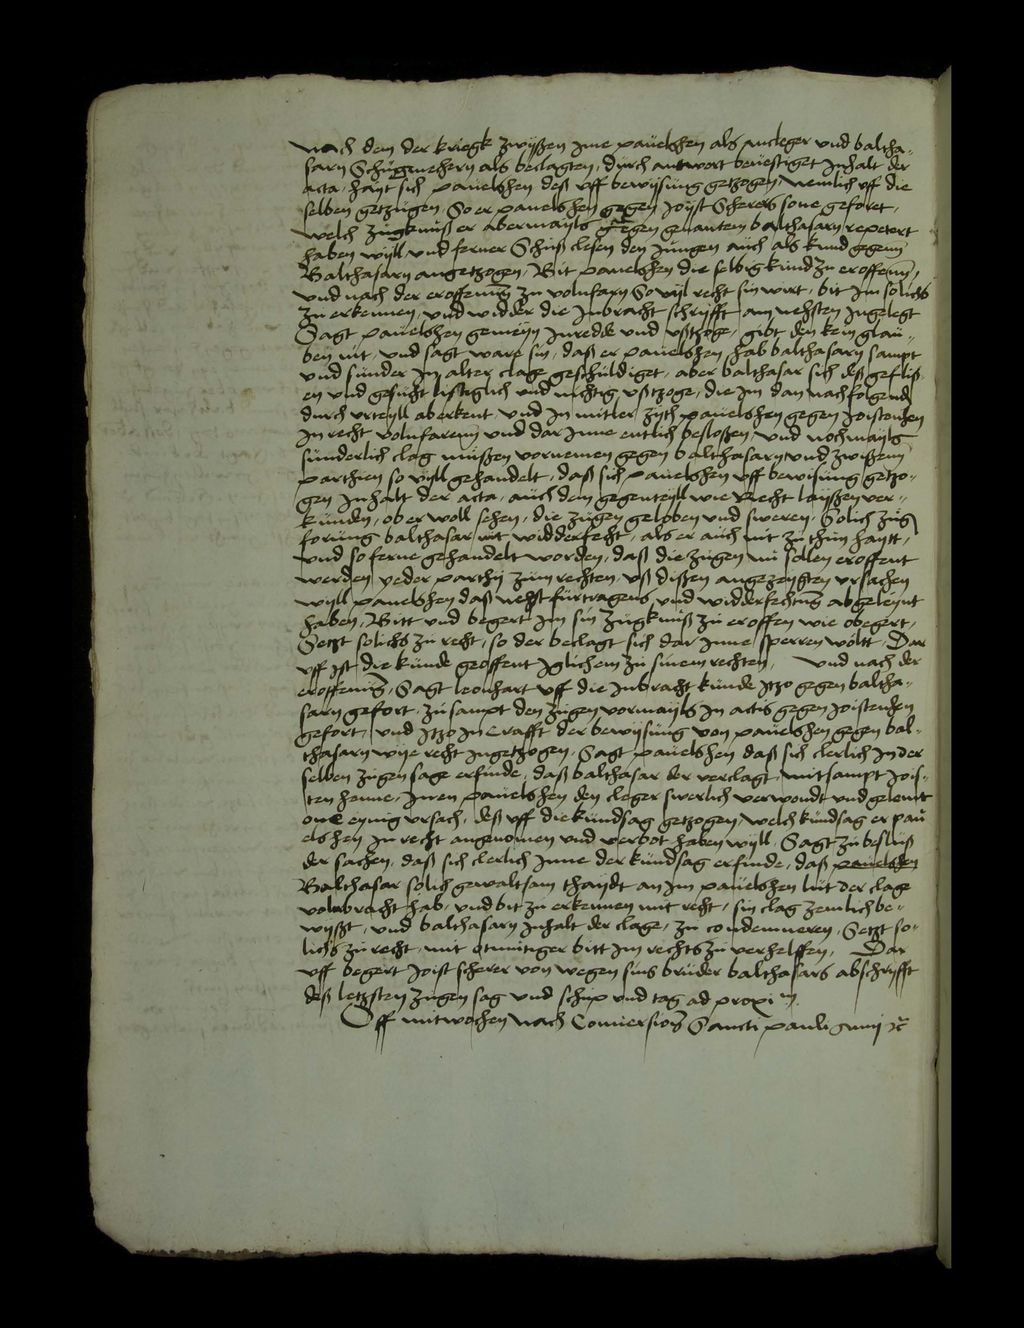 Nach dem der kriegk zwyßen ime pauelßhen als ancleger und baltha-
sarn Schůgmechern als beclagten, durch antwort bevestiget Inhalt der
acta, hayt sich pauelßhen deß uff bewysung getzogen, nemlich uff die
selben getzugen, So er pauelßhen gegen Joist Scherers sone geforet,
welch zugkniß er abermayls gegen genantem balthasarn repetert
haben wyll und ferner Schuß clesen den Jungen auch als kund gegenn
Balthasarn angetzogen, Bit pauelßhen die selbig kund zu eroffenn,
und nach der eroffenung zu volnfaren So vyl recht sin wirt, bit Im solichs
zu erkennen, und widder die Inbracht schryfft am nehsten Ingelegt
Sagt pauelßhen gemeyn Inredde und ußtzoge, gibt den kein glau-
ben nit, und sagt ware sin, daß er pauelßhen hab balthasarn sampt
und sunder In alter clage geschuldiget, aber balthasar sich deß gefliß
en und gesucht listiglich und nichtig ußtzoge, die Im dan nachfolgende
durch urteyll aberkent, und In mitler zyth pauelßhen gegen Joistenhen
In recht volnfarenn und dar Inne entlich besloßen, und nochmayls
sunderlich clag mußen vornemen gegen balthasarn und zwißenn
parthien so vyll gehandelt, daß sich pauelßhen uff bewisung getzo-
gen Inhalt der acta, auch dem gegenteyll wie Recht laußen ver-
kunden, ob er woll sehen, die zugen geloben und sweren, Solich zug
forung balthasar nit widderfecht, als er auch nit zu thun haytt,
und so ferne gehandelt worden, daß die zugen nu sollen eroffent
werden yeder parthy zum rechten, uß dißen angezeygten ursachen
wyll pauelßhen daß nehst furtragens und widderfechtung abgeleynt
haben, Bitt und begert Im sin zugkniß zu eroffen wie obegert,
Setzt solichs zu recht, so der beclagt sich dar Inne sperren wolt. Dar
uff ist die kunde geoffent Iglichem zu sinem rechten, Und nach der
eroffenung, Sagt leonhart uff die Inbracht kunde Itzo gegen baltha-
sarn gefort, zu sampt den zugen vormayls In actis gegen Joistenhen
gefort, und Itzo In Crafft der bewysung von pauelßhen gegen bal-
thasarn wye recht Ingetzogen, Sagt pauelßhen daß sich clerlich In der
selben zugen sage erfinde, daß balthasar der verclagt, mitsampt Jois-
ten henne, Inen pauelßhen den cleger swerlich verwondt und gelemt
one eynig ursach, deß uff die kundsag getzogen, welch kundsag er pau
elßhen In recht angenomen und verbot haben wyll, Sagt zu besluß
der sachen, daß sich clerlich Inne der kundsag erfinde, daß pauelßhen
Balthasar solich gewaltsam thaydt an Im pauelßhen lut der clage
volnbracht hab, und bit zu erkennen mit recht, sin clag zemlich be-
wyßt, und balthasarn Inhalt der clage, zu condemneren, Setzt so-
lichs zu recht, mit otmutiger bitt Im rechts zu verhelffen, Dar
uff begert Joist scherer von wegen sins bruder balthasars abschryfft
deß letzsten zugen sag und schup und tag ad proxim.
Uff mitwochen nach Conversionis Sancti pauli